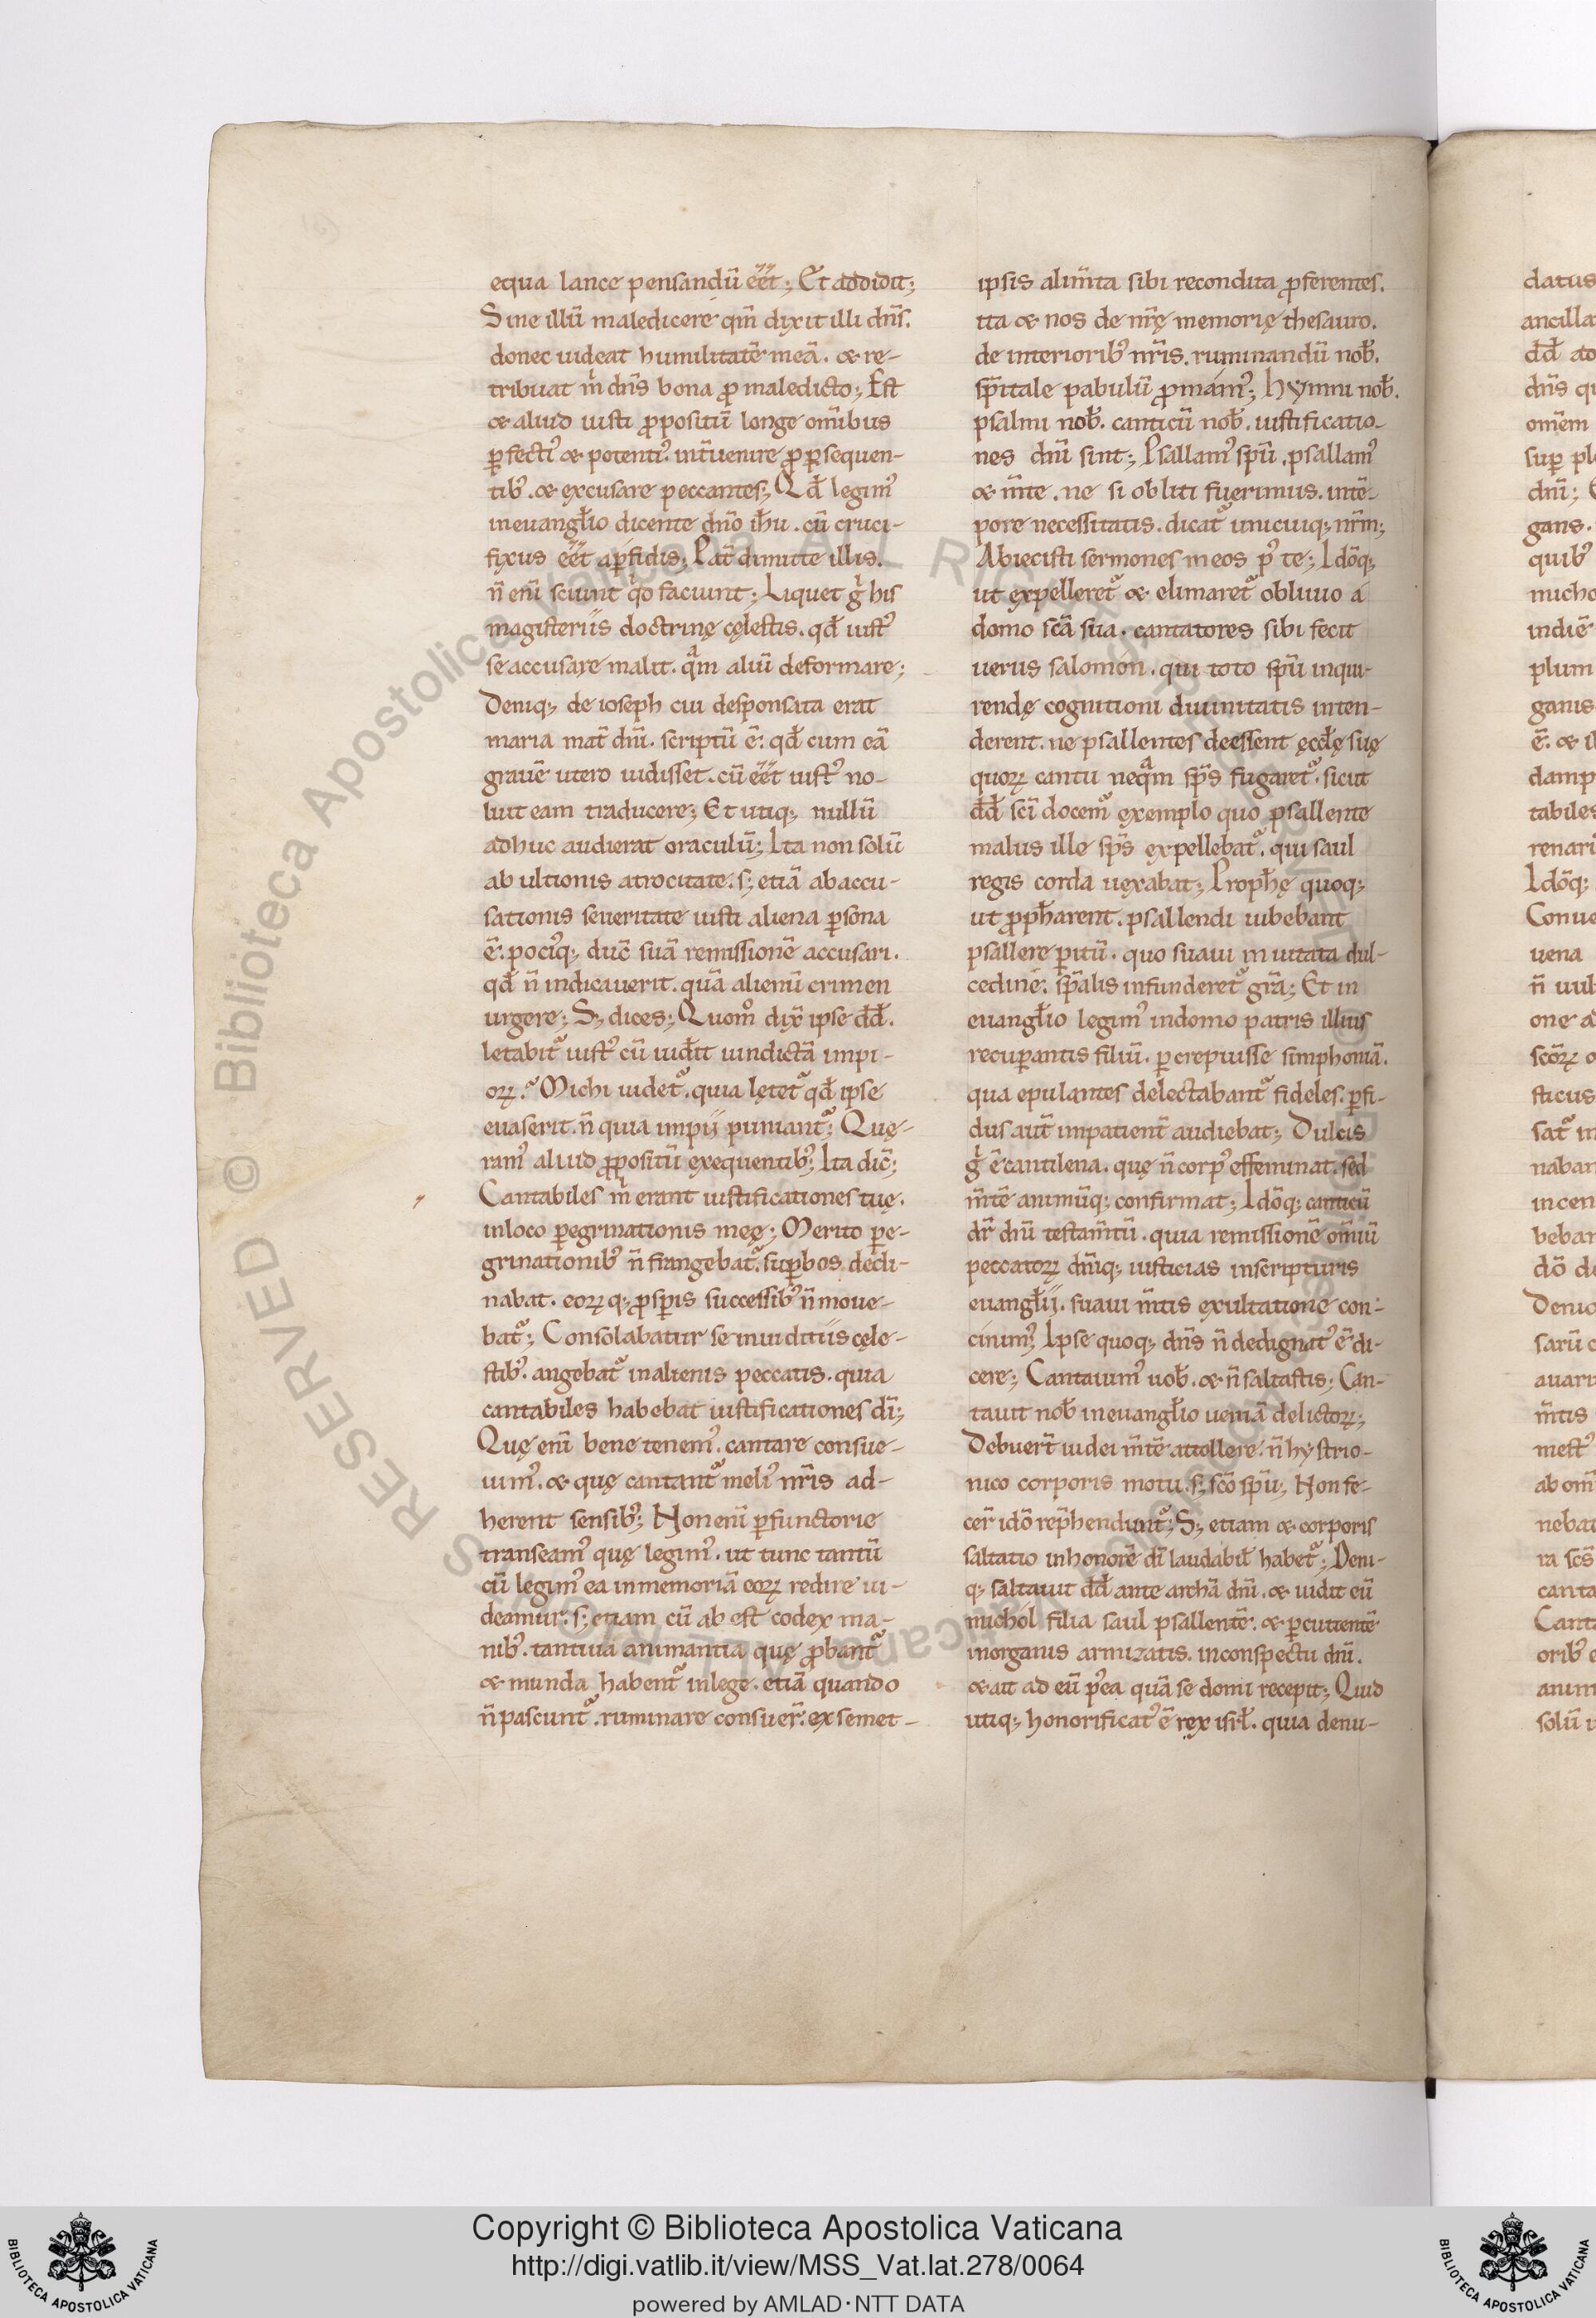 equa lance pensandū eēt; Et addidit;
Sine illū maledicere qm̄ dixit illi dn̄s.
donec uideat humilitatē meā. & re-
tribuat m̄ dn̄s bona ꝓ maledicto; Est
& aliud iusti ꝓpositū longe om̄ibus
ꝑfectiꝰ & potentiꝰ. int̄uenire ꝓ ꝑsequen-
tibꝰ. & excusare peccantes; Qđ legimꝰ
in euangl̄io dicente dn̄o ih̄u. cū cruci-
fixus eēt a ꝑfidis; Pat̄ dimitte illis.
n̄ eni̅ sciunt qd faciunt; Liquet g̊ his
magisteriis doctrinę cęlestis. qđ iustꝰ
se accusare malit. qm aliū deformare;
Deniq; de ioseph cui desponsata erat
maria mat̄ dn̄i. scriptū ē. qđ cum eā
grauē utero uidisset. cū eēt iustꝰ no-
luit eam traducere; Et utiq; nullū
adhuc audierat oraculū; Ita non solū
ab ultionis atrocitate. s; etiā ab accu-
sationis seueritate iusti aliena ꝑsona
ē. pociꝰq; duc̄ suā remissionē accusari.
qđ n̄ indicauerit. quā alienū crimen
urgere; S; dices; Quomͦ dix̄ ipse dđ.
letabit᷑ iustꝰ cū uiđit uindictā impi-
oꝝ. Michi uidet᷑. quia lętet᷑ qđ ipse
euaserit. n̄ quia impii puniant᷑; Quę-
ramꝰ aliud ꝓpositū exequentibꝰ; Ita dic̄;
Cantabiles m̄ erant iustificationes tuę.
in loco ꝑegrinationis meę; Merito ꝑe-
grinationibꝰ n̄ frangebat᷑. suꝑbos decli-
nabat. eoꝝq; ꝓsꝑis successibꝰ n̄ moue-
bat᷑; Consolabatur se in uiditiis cęle-
stibꝰ. angebat᷑ in alienis peccatis. quia
cantabiles habebat iustificationes dī;
Quę eni̅ bene tenemꝰ. cantare consue-
uimꝰ. & quę cantant᷑ meliꝰ nr̄is ad-
herent sensibꝰ; Non eni̅ ꝑfunctorie
transeamꝰ quę legimꝰ. ut tunc tantū
cū legimꝰ ea in memoriā eoꝝ redire ui-
deamur. s; etiam cū ab est codex ma-
nibꝰ. tantiuā animantia quę ꝓbant᷑
& munda habent᷑ in lege. etiā quando
n̄ pascunt᷑. ruminare consuer̄. ex semet-
ipsis alim̄ta sibi recondita ꝓferentes.
ita & nos de nr̄ę memorię thesauro.
de interioribꝰ nr̄is. ruminandū nob̄.
sp̄itale pabulū ꝓmamꝰ; hymni nob̄.
psalmi nob̄. canticū nob̄. iustificatio-
nes dn̄i sint; Psallamꝰ sp̄ū. psallamꝰ
& m̄te. ne si obliti fuerimus. in tē-
pore necessitatis. dicat᷑ unicuiq; nr̄m;
Abiecisti sermones meos pꝰ te; Idōq;
ut expelleret᷑ & elimaret᷑ obliuio á
domo scā sua. cantatores sibi fecit
uerus salomon. qui toto sp̄ū inqui-
rendę cognitioni diuinitatis inten-
derent. ne psallentes deessent ęccl̄ę suę
quoꝝ cantu neqm sp̄s fugaret᷑. sicut
dđ scī docem᷑ exemplo quo psallente
malus ille sp̄s expellebat᷑. qui saul
regis corda uexabat; Proph̄ę quoq;
ut ꝓph̄arent. psallendi iubebant
psallere ꝑitū. quo suaui inuitata dul-
cedine. sp̄alis infunderet᷑ grā; Et in
euangl̄io legimꝰ in domo patris illius
recuꝑantis filiū. ꝑcrepuisse simphoniā.
qua epulantes delectabant᷑ fideles. ꝑfi-
dus aut̄ impatient̄ audiebat; Dulcis
g̊ ē cantilena. quę n̄ corpꝰ effeminat. sed
m̄tē animūq; confirmat; Idōq; canticū
dr̄ dn̄i testam̄tū. quia remissionē om̄iū
peccatoꝝ dn̄iq; iusticias in scripturis
euangl̄ij. suaui m̄tis exultatione con-
cinimꝰ; Ipse quoq; dn̄s n̄ dedignatꝰ ē di-
cere; Cantauimꝰ uob̄. & n̄ saltastis; Can-
tauit nob̄ in euangl̄io ueniā delictoꝝ;
Debuer̄t iudei m̄tē attollere. n̄ hystrio-
nico corporis motu. s; scō sp̄ū; Non fe-
cer̄ idō rep̄hendunt᷑; S; etiam & corporis
saltatio in honorē dī laudabil̄ habet᷑; Deni-
q; saltauit dđ ante archā dn̄i. & uidit eū
michol filia saul psallentē. & ꝑcutientē
in organis armizatis. in conspectu dn̄i.
& ait ad eū pꝰea quā se domi recepit; Quid
utiq; honorificatꝰ ē rex isrl̄. quia denu-
Copyright © Biblioteca Apostolica Vaticana
http://digi.vatlib.it/view/MSS_Vat.lat.278/0064
powered by AMLAD·NTT DATA